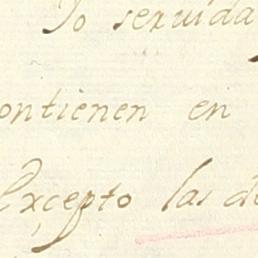 To seruida
ontienen en
Excepto las de